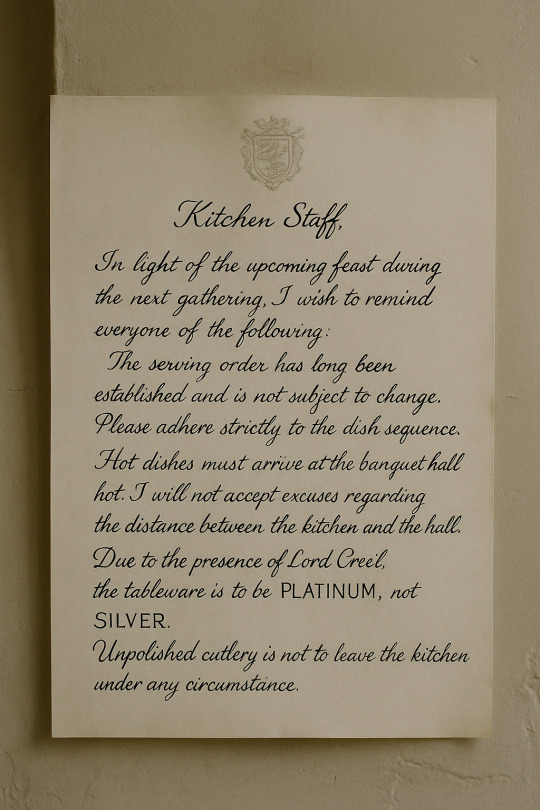 Kitchen Staff,
In light of the upcoming feast during
the next gathering, I wish to remind
everyone of the following:
The serving order has long been
established and is not subject to change.
Please adhere strictly to the dish sequence.
Hot dishes must arrive at the banquet hall
hot. I will not accept excuses regarding
the distance between the kitchen and the hall.
Due to the presence of Lord Creel,
the tableware is to be PLATINUM, not
SILVER.
Unpolished cutlery is not to leave the kitchen
under any circumstance.